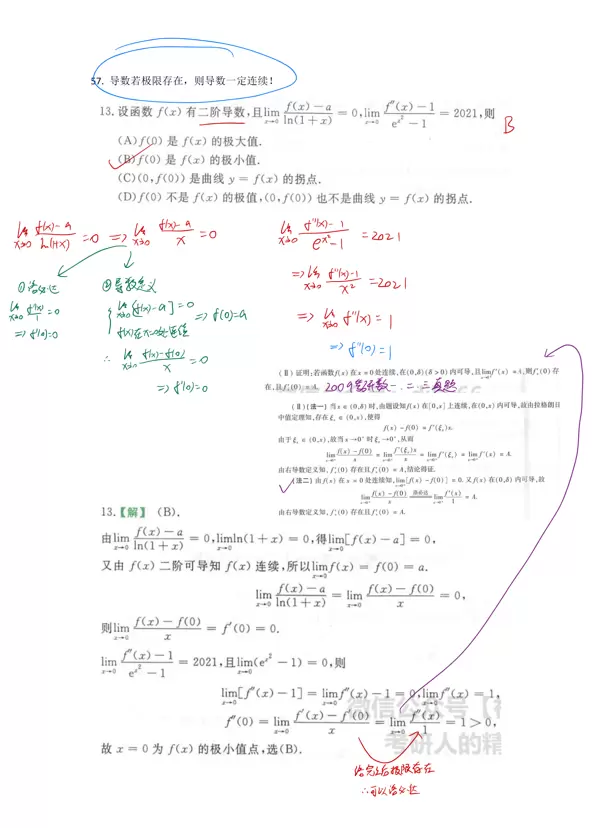 57. 导数若极限存在，则导数一定连续！
13. 设函数 f(x) 有二阶导数, 且 lim_{x→0} (f(x)-a)/ln(1+x) = 0, lim_{x→0} (f''(x)-1)/(e^{x²}-1) = 2021, 则
B
(A) f(0) 是 f(x) 的极大值.
(B) f(0) 是 f(x) 的极小值.
(C) (0, f(0)) 是曲线 y = f(x) 的拐点.
(D) f(0) 不是 f(x) 的极值, (0, f(0)) 也不是曲线 y = f(x) 的拐点.
lim_{x→0} (f(x)-a)/ln(1+x) = 0 ⇒ lim_{x→0} (f(x)-a)/x = 0
①洛必达
lim_{x→0} f'(x)/1 = 0
⇒ f'(0)=0
②导数定义
{ lim_{x→0} [f(x)-a] = 0
f(x)在x=0处连续
⇒ f(0)=a
∴ lim_{x→0} (f(x)-f(0))/x = 0
⇒ f'(0)=0
lim_{x→0} (f''(x)-1)/(e^{x²}-1) = 2021
⇒ lim_{x→0} (f''(x)-1)/x² = 2021
⇒ lim_{x→0} f''(x) = 1
⇒ f''(0)=1
(Ⅱ) 证明: 若函数 f(x) 在 x = 0 处连续, 在 (0,δ)(δ > 0) 内可导, 且 lim_{x→0⁺} f'(x) = A, 则 f'₊(0) 存
在, 且 f'₊(0) = A. 2009考研数一、二、三真题
(Ⅱ)(法一) 当 x ∈ (0,δ) 时, 由题设知 f(x) 在 [0,x] 上连续, 在 (0,x) 内可导, 故由拉格朗日
中值定理知, 存在 ξₓ ∈ (0,x), 使得
f(x) - f(0) = f'(ξₓ)x.
由于 ξₓ ∈ (0,x), 故当 x→0⁺ 时 ξₓ→0⁺, 从而
lim_{x→0⁺} (f(x)-f(0))/x = lim_{x→0⁺} f'(ξₓ)x/x = lim_{x→0⁺} f'(ξₓ) = lim_{x→0⁺} f'(x) = A.
由右导数定义知, f'₊(0) 存在且 f'₊(0) = A, 结论得证.
(法二) 由 f(x) 在 x = 0 处连续知, lim_{x→0⁺} [f(x) - f(0)] = 0. 又 f(x) 在 (0,δ) 内可导, 故
lim_{x→0⁺} (f(x)-f(0))/x 洛必达 lim_{x→0⁺} f'(x)/1 = A.
由右导数定义知, f'₊(0) 存在且 f'₊(0) = A.
13. 【解】 (B).
由 lim_{x→0} (f(x)-a)/ln(1+x) = 0, lim_{x→0} ln(1+x) = 0, 得 lim_{x→0} [f(x)-a] = 0,
又由 f(x) 二阶可导知 f(x) 连续, 所以 lim_{x→0} f(x) = f(0) = a.
lim_{x→0} (f(x)-a)/ln(1+x) = lim_{x→0} (f(x)-f(0))/x = 0,
则 lim_{x→0} (f(x)-f(0))/x = f'(0) = 0.
lim_{x→0} (f''(x)-1)/(e^{x²}-1) = 2021, 且 lim_{x→0} (e^{x²}-1) = 0, 则
lim_{x→0} [f''(x)-1] = lim_{x→0} f''(x) - 1 = 0, lim_{x→0} f''(x) = 1,
f''(0) = lim_{x→0} (f'(x)-f'(0))/x = lim_{x→0} f''(x)/1 = 1 > 0,
故 x = 0 为 f(x) 的极小值点, 选(B).
洛完之后极限存在
∴可以洛必达
考研人的精